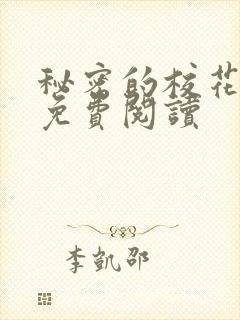 秘密的校花
免費閱讀
李凱邵